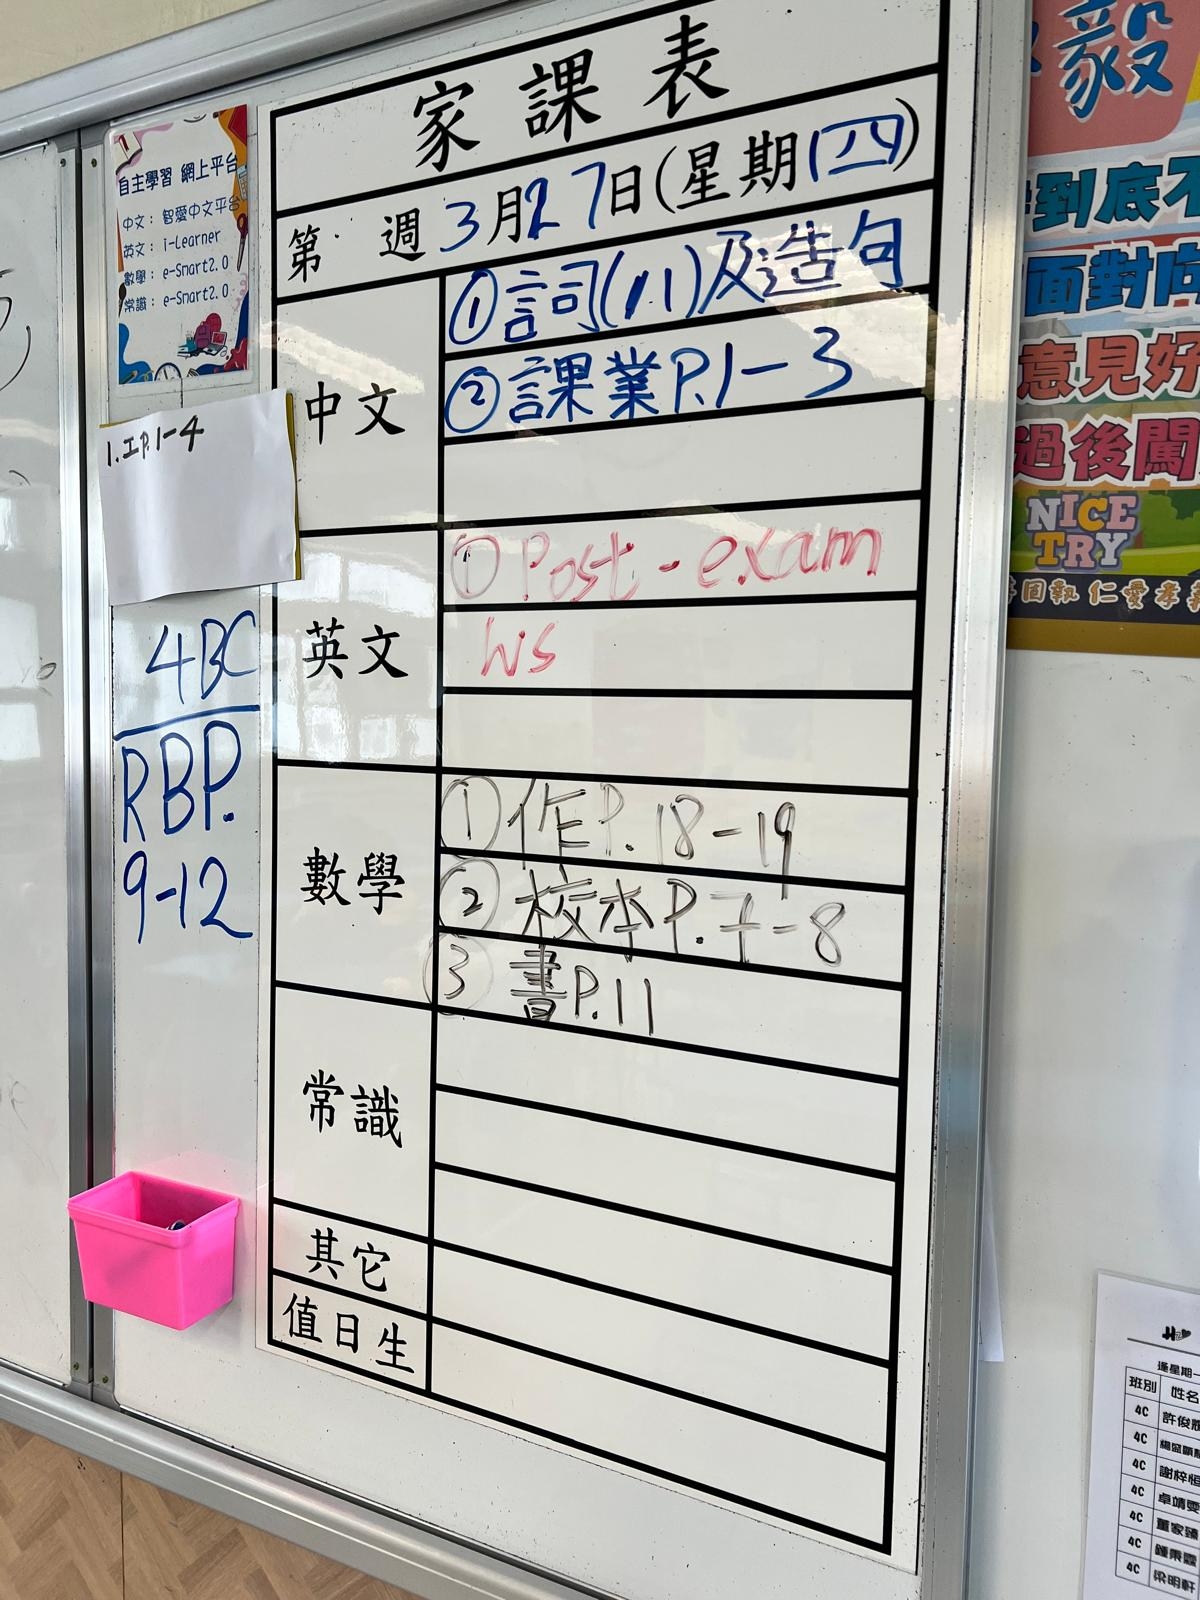 家課表
第 週 3月27日(星期四)
中文
①詞(八)及造句
②課業P.1-3
英文
①Post-exam
WS
數學
①作P.18-19
②校本P.7-8
③書P.11
常識
其它
值日生
自主學習 網上平台
中文：智愛中文平台
英文：i-Learner
數學：e-Smart2.0
常識：e-Smart2.0
1.工P.1-4
4BC
RBP.
9-12
毅
到底不
面對向
意見好
過後闖
NICE
TRY
固執 仁愛孝
逢星期一
班別 姓名
4C
4C
4C 謝梓恒
4C
4C
4C
4C